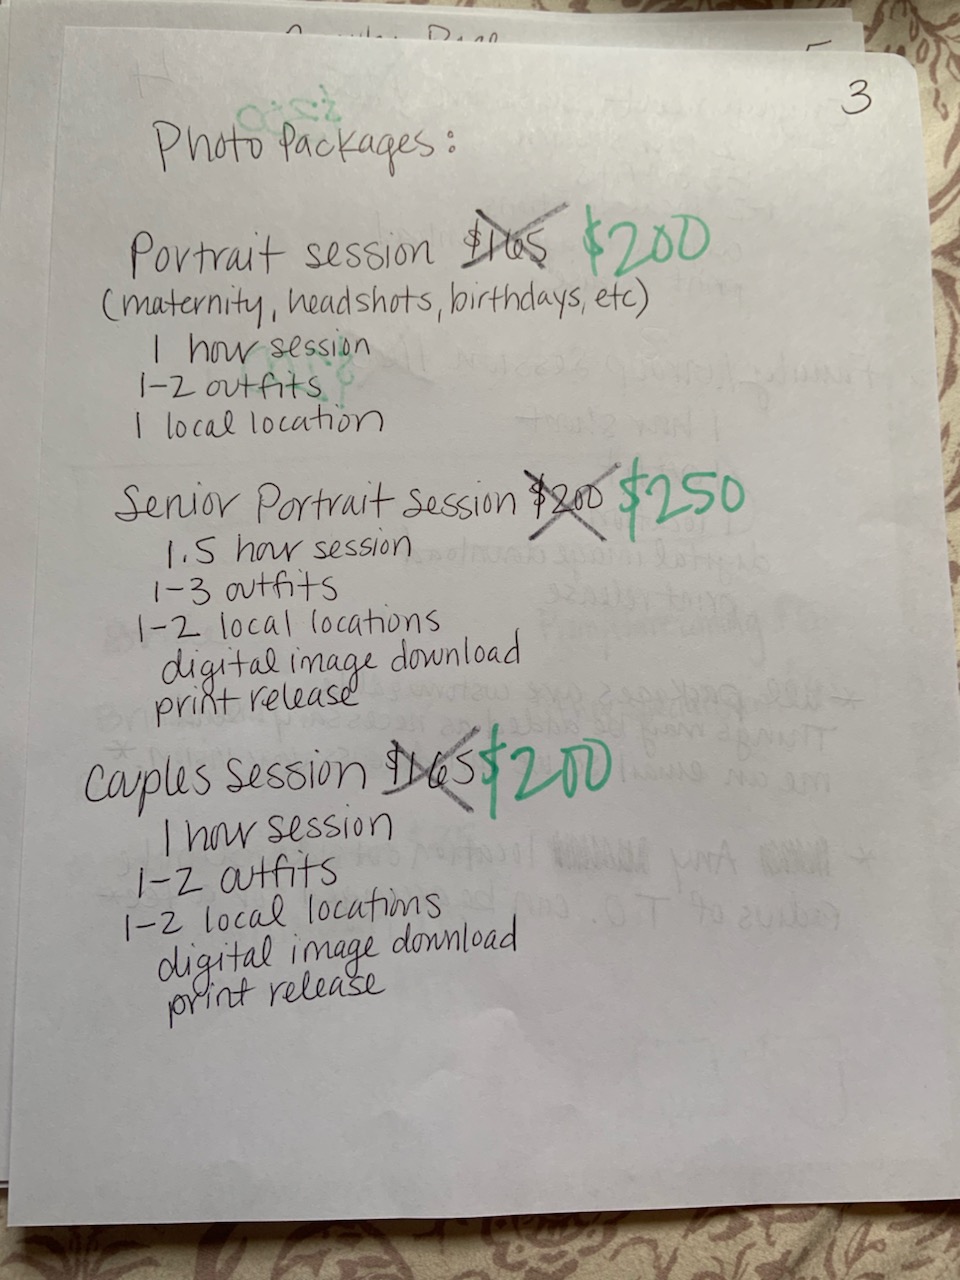 3
Photo Packages:
Portrait session $165 $200
(maternity, headshots, birthdays, etc)
1 hour session
1-2 outfits
1 local location
Senior Portrait Session $200 $250
1.5 hour session
1-3 outfits
1-2 local locations
digital image download
print release
Couples Session $165 $200
1 hour session
1-2 outfits
1-2 local locations
digital image download
print release